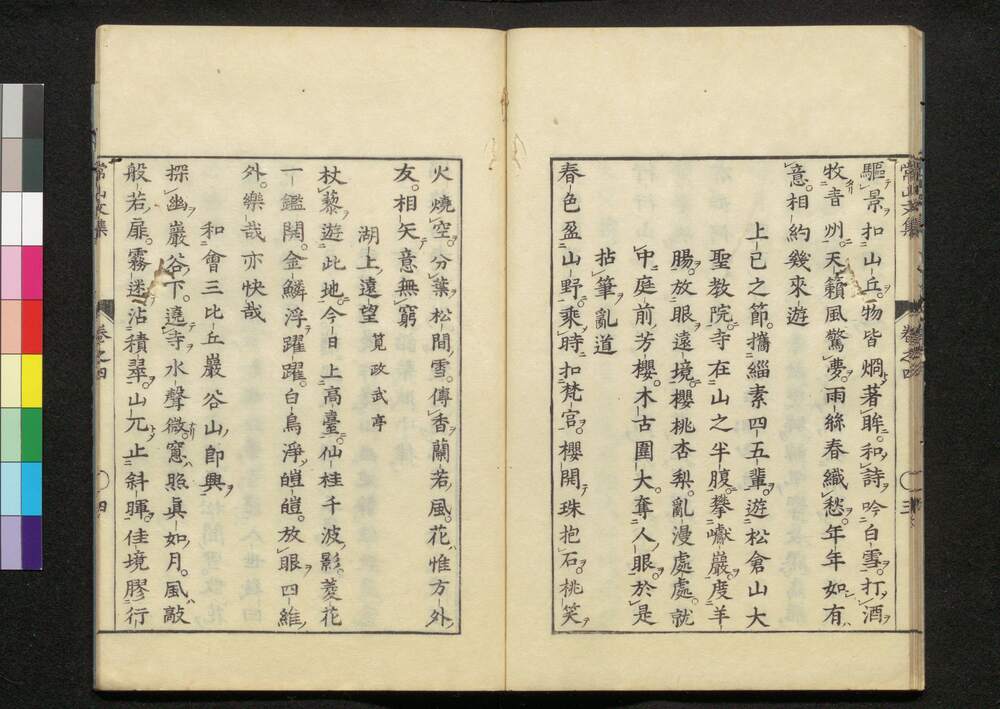 驅景扣山丘物皆烱著眸和詩吟白雪打酒
牧青州天籟風驚夢雨絲春織愁年年如有
意相約幾來遊
上巳之節攜緇素四五輩遊松倉山大
聖教院寺在山之半腹攀巘巖度羊
腸放眼遠境櫻桃杏梨亂漫處處就
中庭前芳櫻木古圍大奪人眼於是
拈筆亂道
春色盈山野乘時扣梵宮櫻開珠抱石桃笑
火燒空分葉松間雪傳香蘭若風花惟方外
友相矢意無窮
湖上遠望 筧政武亭
杖藜遊此地今日上高臺仙桂千波影菱花
一鑑開金鱗浮躍躍白鳥淨皚皚放眼四維
外樂哉亦快哉
和會三比丘巖谷山即興
探幽巖谷下遶寺水聲微窻照眞如月風敲
般若扉霧迷沾積翠山兀止斜暉佳境膠行
常山文集
卷之四
三
常山文集
卷之四
四